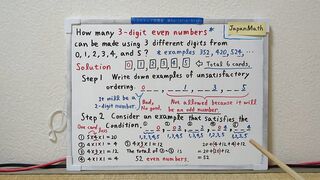 JapanMath
How many 3-digit even numbers*
can be made using 3 different digits from
0, 1, 2, 3, 4, and 5 ? * examples 352, 420, 524, ...
Solution 0 1 2 3 4 5 Total 6 cards.
Step 1 Write down examples of unsatisfactory
ordering. 0 _ _, _ _ 1, _ _ 3, _ _ 5
It will be a
2-digit number.
Bad,
No good.
Not allowed because it will
be an odd number.
Step 2 Consider an example that satisfies the
condition.
One card less
① 5×4×1 = 20 ④ 4×1×1 = 4
② 4×1×1 = 4 ⑤ 4×3×1 = 12 20+(4+4)+(4+12)
③ 4×3×1 = 12 The total of ①~⑤ is = 20+20+12
52 even numbers = 52